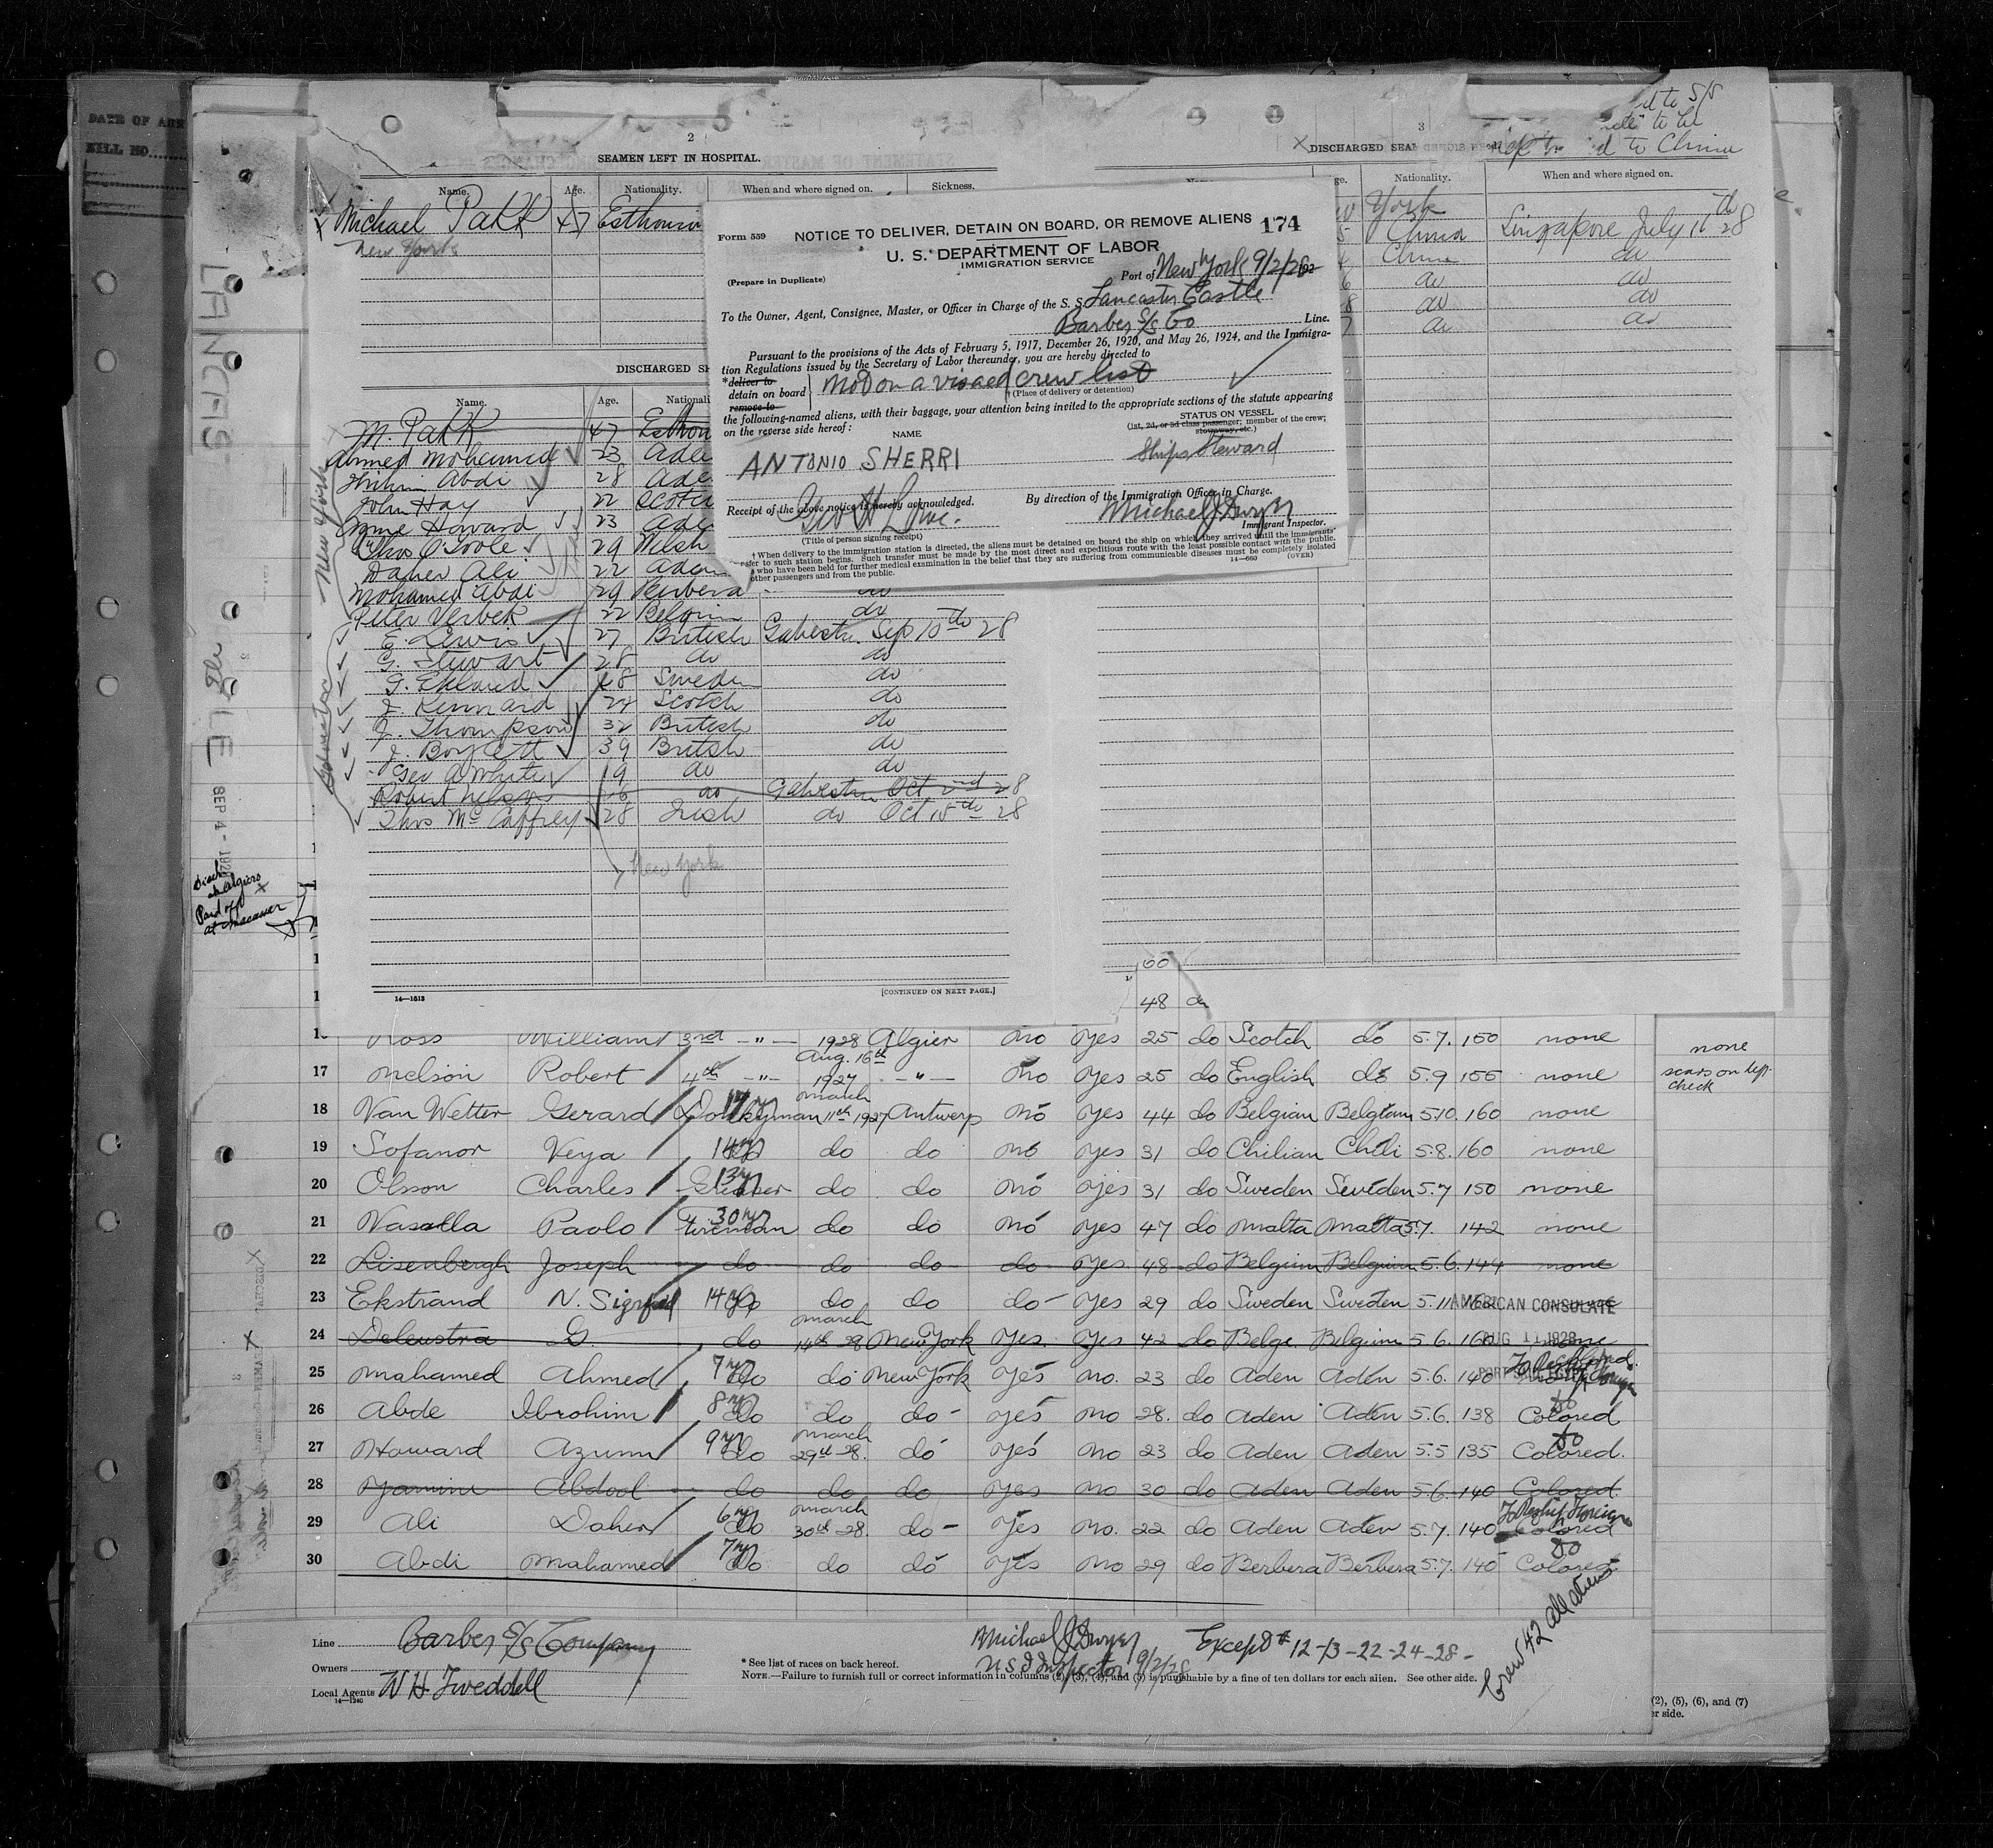 DATE OF
BILL NO.
LANCAS
LE
SEP 4 - 192
Paid off
at
2
SEAMEN LEFT IN HOSPITAL.
Name. Age. Nationality. When and where signed on. Sickness.
x Michael Pakk 47
New York
3
x DISCHARGED
to S/S
to be
d to China
Nationality. When and where signed on.
York
China Singapore July 11th 28
China do
6 do do
8 do do
7 do do
Form 559
NOTICE TO DELIVER, DETAIN ON BOARD, OR REMOVE ALIENS
174
U. S. DEPARTMENT OF LABOR
IMMIGRATION SERVICE
(Prepare in Duplicate)
Port of New York 9/2/28 192
To the Owner, Agent, Consignee, Master, or Officer in Charge of the S. S. Lancaster Castle
Barber S/S Co Line.
Pursuant to the provisions of the Acts of February 5, 1917, December 26, 1920, and May 26, 1924, and the Immigra-
tion Regulations issued by the Secretary of Labor thereunder, you are hereby directed to
*deliver to
detain on board
remove to
not on a visaed crew list
† (Place of delivery or detention)
the following-named aliens, with their baggage, your attention being invited to the appropriate sections of the statute appearing
on the reverse side hereof:
STATUS ON VESSEL
(1st, 2d, or 3d class passenger; member of the crew;
stowaway, etc.)
NAME
ANTONIO SHERRI Ships Steward
Receipt of the above notice is hereby acknowledged.
By direction of the Immigration Officer in Charge.
Geo H Lowe.
Michael J Dwyer
(Title of person signing receipt)
Immigrant Inspector.
† When delivery to the immigration station is directed, the aliens must be detained on board the ship on which they arrived until the immigrants'
refer to such station begins. Such transfer must be made by the most direct and expeditious route with the least possible contact with the public.
who have been held for further medical examination in the belief that they are suffering from communicable diseases must be completely isolated
other passengers and from the public.
14—660
(OVER)
DISCHARGED
Name. Age. Nationali
New York
Galveston
M. Pakk 47 Esthon
Ahmed Mohamed 23 Ade
Abdi 28 Ade
John Hay 22 Scotch
Howard 23 Ade
Thos O'Toole 29 Welsh
Daher Ali 22 Aden
Mohamed Abdi 29 Berbera do
Peter Verbek 22 Belgium do
E. Lewis 27 British Galveston Sep 10th 28
G. Stewart 28 do do
G. Eklund 48 Sweden do
J. Kennard 24 Scotch do
J. Thompson 32 British do
J. Boylett 39 British do
Geo A White 19 do do
Robert Nelson 26 do Galveston Oct 2nd 28
Thos McCaffrey 28 Irish do Oct 15th 28
New York
14—1513
[CONTINUED ON NEXT PAGE.]
48 do
Ross William 3rd -"- 1928 Algier no yes 25 do Scotch do 5.7. 150 none
none
17 Nelson Robert 4th -"- Aug. 16th 1927 -"- no yes 25 do English do 5.9 155 none
scars on left
check
18 Van Wetter Gerard Donkeyman March 11th 1927 Antwerp no yes 44 do Belgian Belgium 5.10. 160 none
19 Sofanor Veya 14 yr do do no yes 31 do Chilian Chili 5.8. 160 none
20 Olsson Charles Greaser 13 yr do do no yes 31 do Sweden Sweden 5.7 150 none
21 Vasalla Paolo Fireman 30 yr do do no yes 47 do Malta Malta 5.7. 142 none
22 Lisenbergh Joseph do do do do yes 48 do Belgium Belgium 5.6. 144 none
23 Ekstrand N. Sigrfrid 14 yr do do do do yes 29 do Sweden Sweden 5.11
AMERICAN CONSULATE
24 Deleustra G. do March 14th 28 New York yes. yes 42 do Belge. Belgium 5.6. 160 none
AUG 11 1928
25 Mahamed Ahmed 7 yr do do New York yes no. 23 do Aden Aden 5.6. 140
PORT SAID, EGYPT
26 Abde Ibrohim 8 yr do do do yes no 28. do Aden Aden 5.6. 138 Colored
27 Howard Azumu 9 yr do March 29th 28. do yes no 23 do Aden Aden 5.5 135 Colored.
28 Yamine Abdool do do do yes no 30 do Aden Aden 5.6. 140 Colored.
29 Ali Daher 6 yr do March 30th 28. do yes no. 22 do Aden Aden 5.7. 140 Colored
30 Abdi Mahamed 7 yr do do do yes no 29 do Berbera Berbera 5.7. 140 Colored
Line Barber S/S Company
Owners
Local Agents W H Tweddell
14—1240
Michael J Dwyer
U S I Inspector 9/2/28
Except # 12-13-22-24-28-
Crew 42 all aliens
* See list of races on back hereof.
NOTE.—Failure to furnish full or correct information in columns (2), (3), (4), and (5) is punishable by a fine of ten dollars for each alien. See other side.
(2), (5), (6), and (7)
er side.